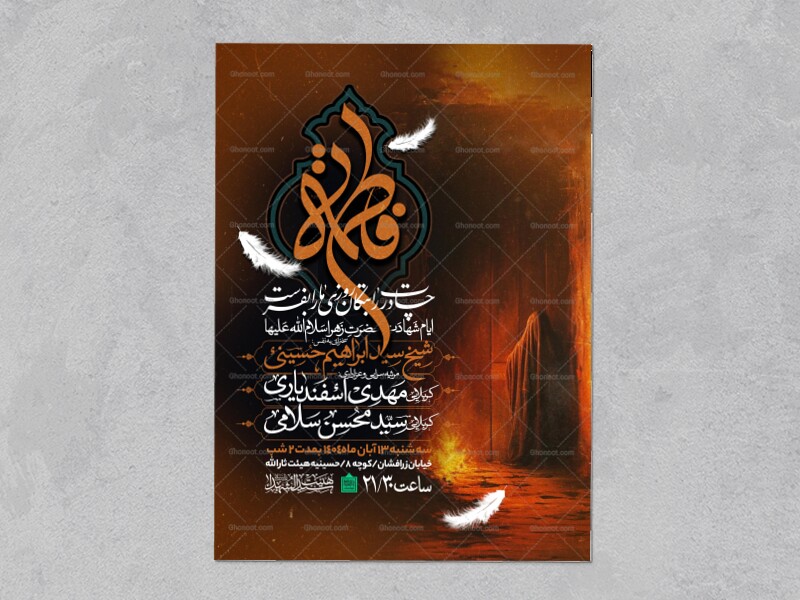 فاطمة
چادرت را بتکان روزی ما را بفرست
ایام شهادت حضرت زهرا سلام الله علیها
سخنرانی به نفس:
شیخ سید ابراهیم حسینی
مرثیه سرایی و عزاداری:
کربلائی مهدی اسفندیاری
کربلائی سید محسن سلامی
سه شنبه ۱۳ آبان ماه ۱۴۰۴ بمدت ۲ شب
خیابان زرافشان/کوچه ۸/حسینیه هیئت ثارالله
ساعت ۲۱/۳۰
Ghonoot.com